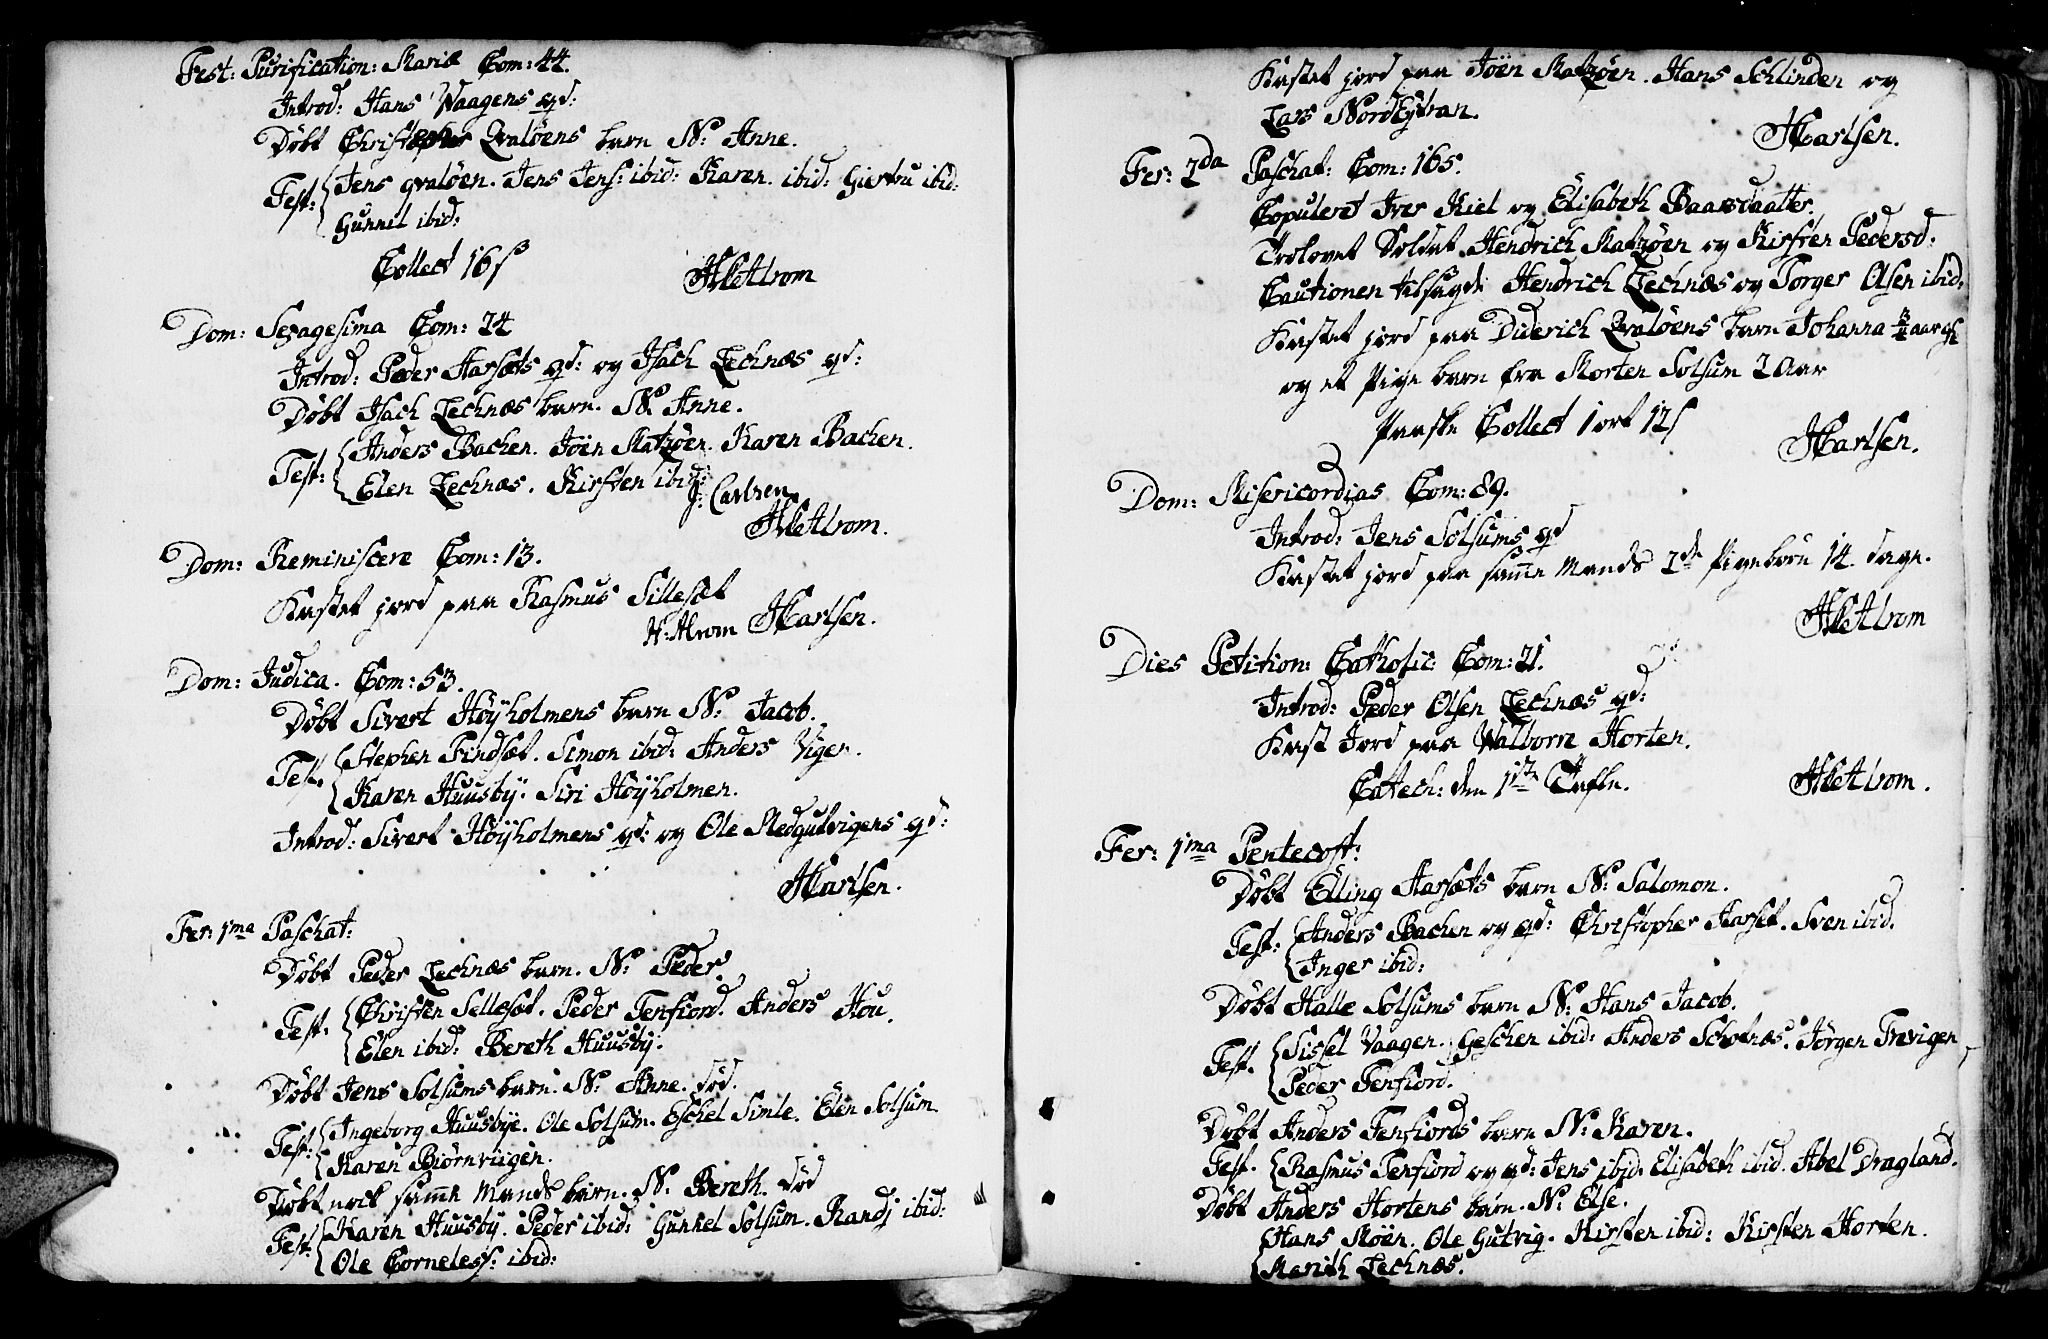 Fest: Purification: Mariæ Com: 44.
Introd: Hans Waagens qd:
Döbt Christopher Qvalöens barn N: Anne.
Test: Jens qvalöen. Jens Jens: ibid: Karen ibid: Giertru ibid:
Gunnel ibid:
Collect 16 s
Dom: Sexagesima Com: 24
Introd: Peder Aarsæts qd: og Isach Lechnæs qd:
Döbt Isach Lechnæs barn. N. Anne.
Test: Anders Bachen. Jöen Matzöen. Karen Bachen.
Elen Lechnæs. Kirsten ibid:
J. Carlsen
Dom: Reminiscere Com: 13.
Kastet jord paa Rasmus Sillesæt
H: Alrom HCarlsen.
Dom: Judica. Com: 53.
Döbt Sivert Höÿholmens barn N: Jacob.
Test. Stephen Findsæt. Simon ibid: Anders Vigen.
Karen Huusbÿ. Siri Höÿholmen.
Introd: Sivert Höÿholmens qd: og Ole Nedgutvigens qd:
HCarlsen.
Fer: 1ma Paschat:
Döbt Peder Lechnæs barn. N: Peder.
Test. Christen Sellesæt. Peder Tenfiord. Anders Hou.
Elen ibid: Bereth Huusbÿ.
Döbt Jens Solsums barn. N: Anne. död.
Test: Ingeborg Huusbÿe. Ole Solsum. Eschel Simle. Elen Solsum
Karen Biörnviigen.
Döbt nock samme Mands barn. N: Bereth. död
Test: Karen Huusbÿ. Peder ibid: Gunnel Solsum. Randi ibid:
Ole Corneless: ibid:
Kastet jord paa Jöen Matzöen. Hans Schlinden og
Lars Nordeÿtran.
HCarlsen.
Fer: 2da Paschat: Com: 165.
Copuleret Iver Kiel og Elisabeth Baarsdaatter.
Trolovet Soldat Hendrich Matzöen og Kirsten Pedersd:
Cautionen tilsagde Hendrich Lechnæs og Torger Olsen ibid:
Kastet jord paa Diderich Qvalöens barn Johanna 3/4 aar gl
og et Pige barn fra Morten Solsum 2 Aar
Paaske Collect 1 ort 12 s
HCarlsen.
Dom: Misericordias Com: 89.
Introd: Jens Solsums qd
Kastet jord paa samme Mands 2de Pigebörn 14 dage.
Dies Petition: Catholic: Com: 21.
Introd: Peder Olsen Lechnæs qd:
Kast Jord paa Walborre Horten.
Catech: den 1ste Tafle.
Fer: 1ma Pentecost:
Döbt Elling Aarsæts barn N: Salomon.
Test: Anders Bachen og qd: Christopher Aarset. Sven ibid.
Inger ibid:
Döbt Halle Solsums barn N: Hans Jacob.
Test. Sissel Vaagen. Geschen ibid: Anders Schoenæs. Jörgen Trevigen
Peder Tenfiord.
Döbt Anders Tenfiords barn N: Karen.
Test. Rasmus Tenfiord og qd: Jens ibid: Elisabeth ibid. Abel Dragland.
Döbt Anders Hortens barn. N: Else.
Hans Moen. Ole Gutvig. Kirsten ibid: Kirsten Horten.
Marith Lechnæs.